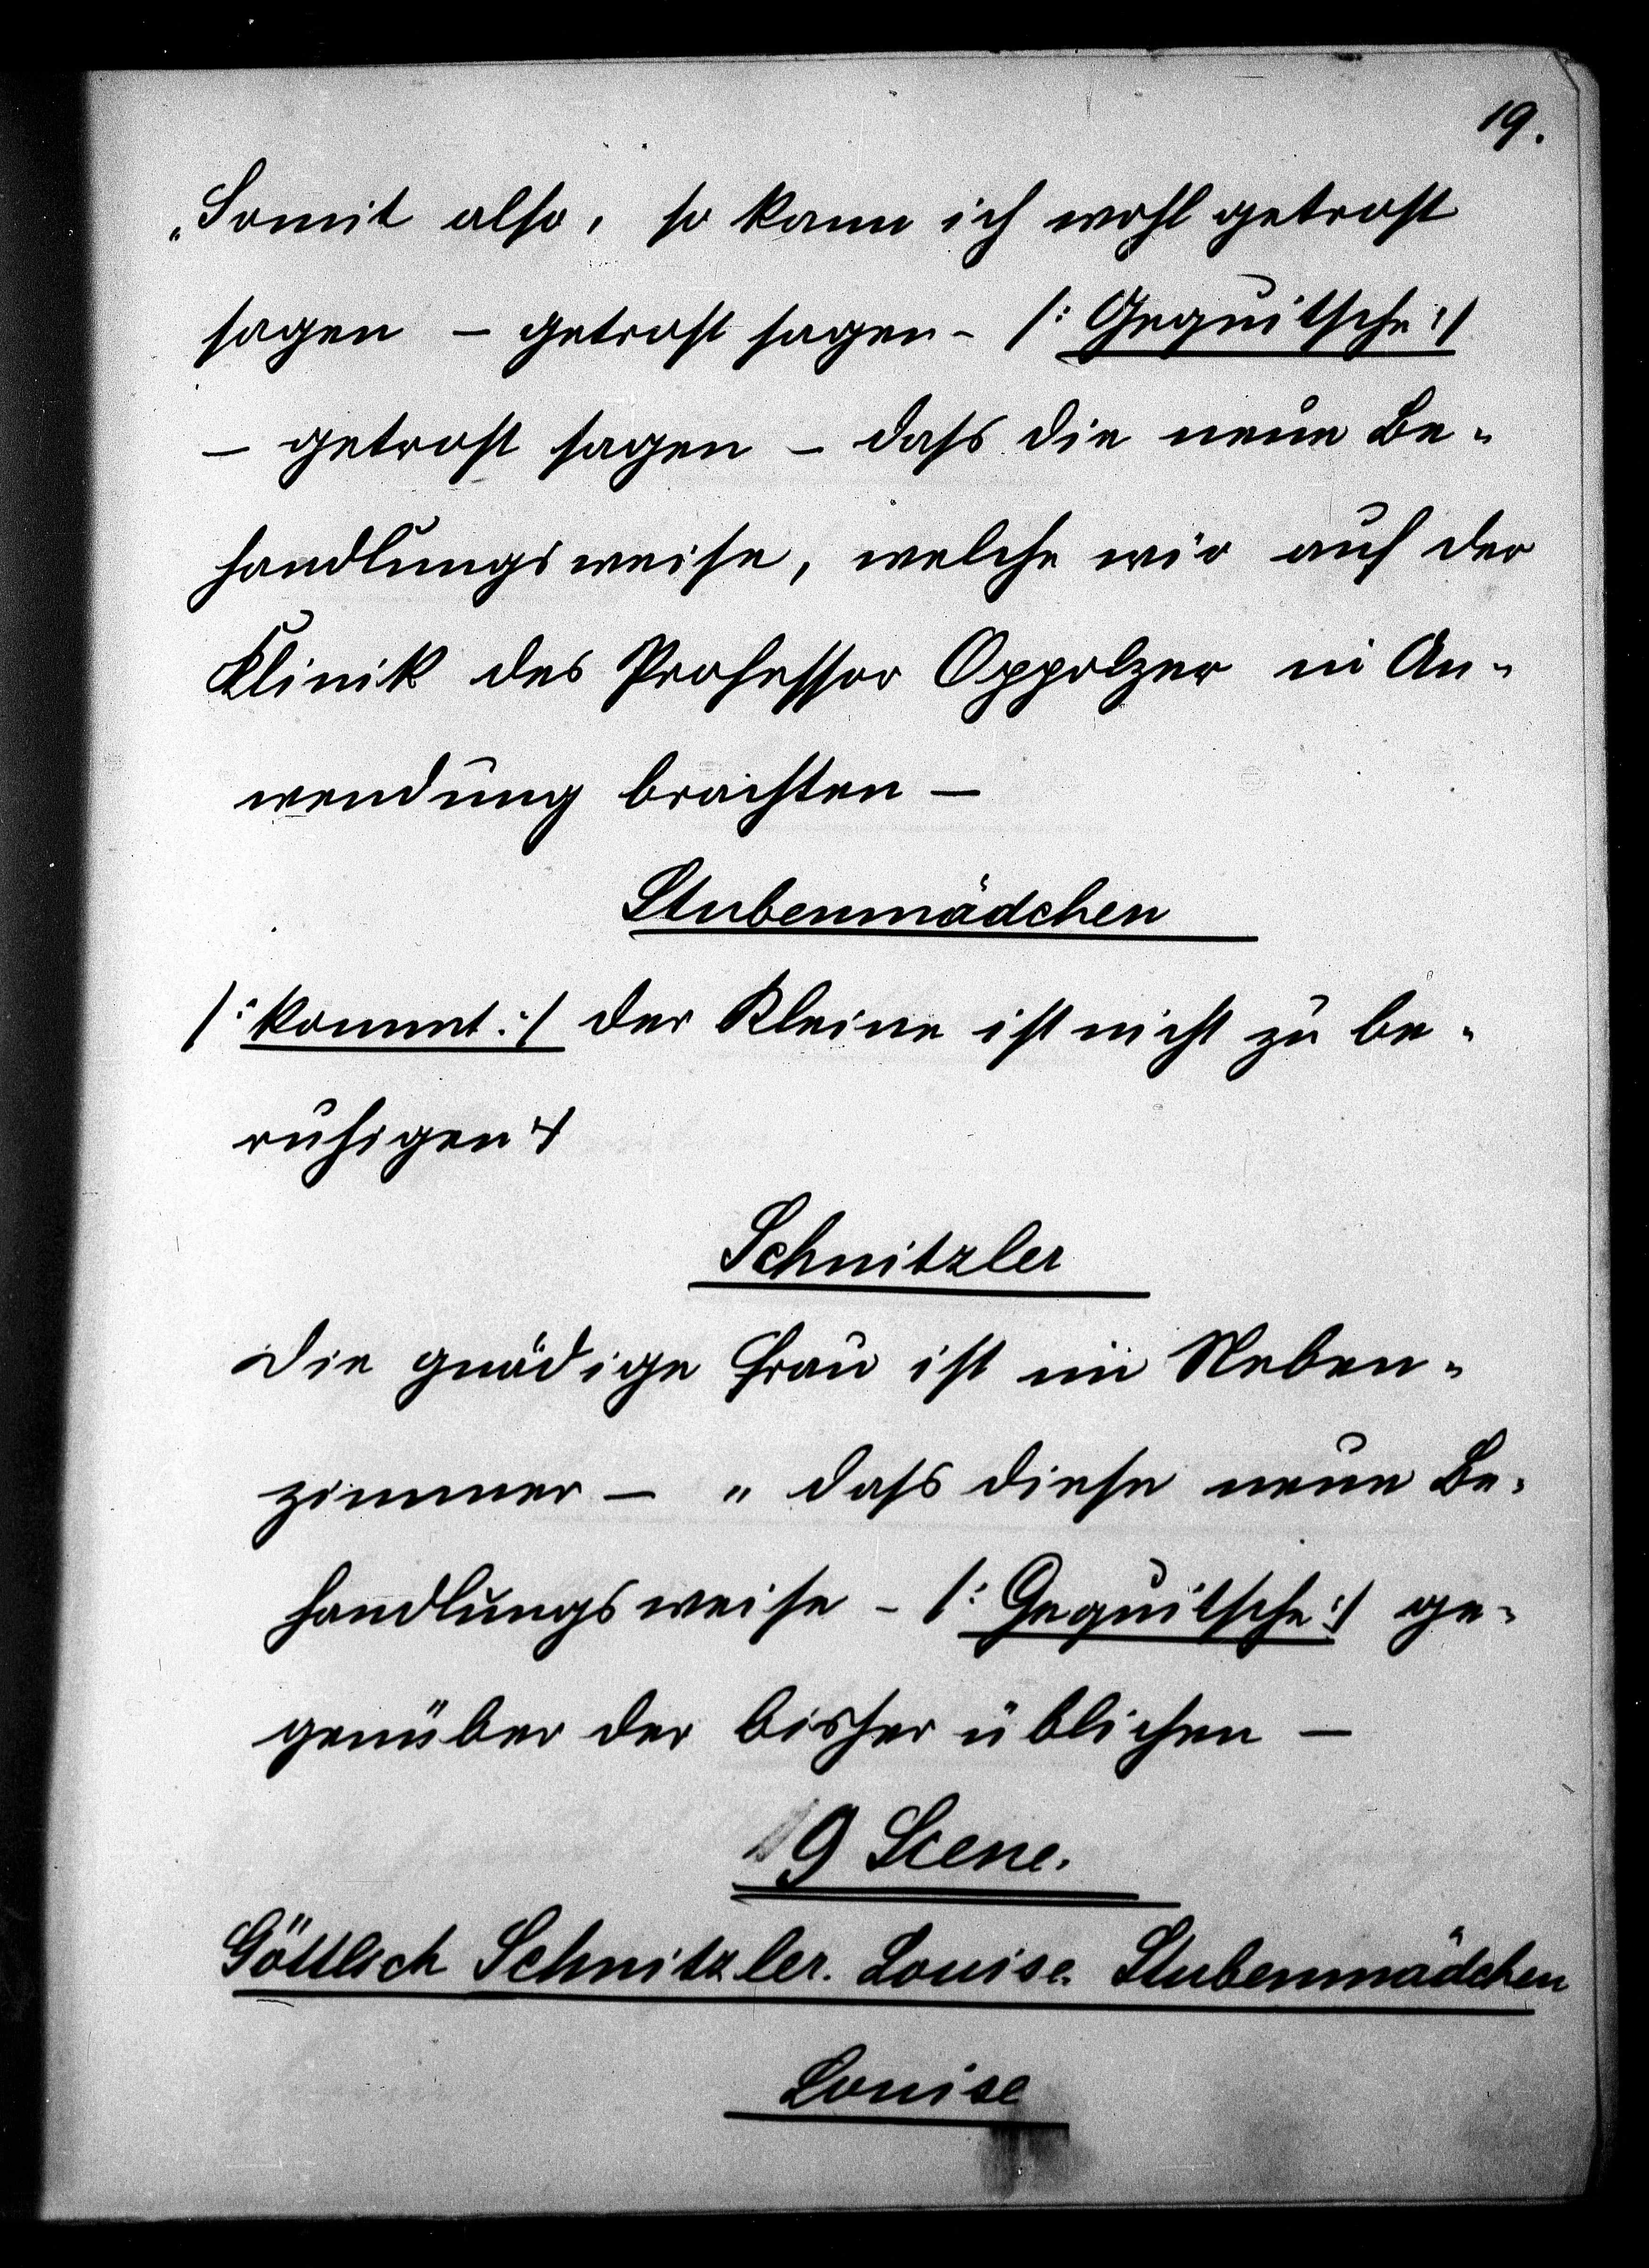 19.
„Somit also, so kann ich wohl getrost
sagen – getrost sagen – /: Gequitsche :/
– getrost sagen – dass die neue Be-
handlungsweise, welche wir auf der
Klinik des Professor Oppolzer in An-
wendung brachten –
Stubenmädchen
/: kommt :/ der Kleine ist nicht zu be-
ruhigen :/
Schnitzler
Die gnädige Frau ist im Neben-
zimmer – „dass diese neue Be-
handlungsweise – /: Gequitsche :/ ge-
genüber der bisher üblichen –
9 Scene.
Göttlich Schnitzler. Louise. Stubenmädchen
Louise